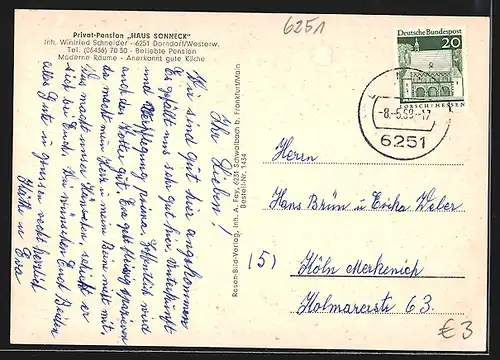 Privat-Pension „HAUS SONNECK"
Inh. Winfried Schneider - 6251 Dorndorf/Westerw.
Tel. (06436) 70 50 - Beliebte Pension
Moderne Räume - Anerkannt gute Küche
6251
Deutsche Bundespost
20
LORSCH/HESSEN
-8.-5.69.-17
6251
Ihr Lieben!
Wir sind gut hier angekommen
Es gefällt uns sehr gut hier. Unterkunft
und Verpflegung prima. Hoffentlich wird
auch das Wetter gut. Eva geht spazieren
da macht mein Herz u. mein Bein nicht mit.
Was macht unser Hänschen, schickt er
sich bei Euch. Wir wünschen Euch Beiden
alles Gute u. grüssen recht herzlich
Käthe u. Eva
Rosen-Bild-Verlag, Inh. A. Fey, 6231 Schwalbach b. Frankfurt/Main
Bestell-Nr. 1434
Herrn
Hans Brün u. Erika Weber
(5) Köln Merkenich
Holmarerstr 63.
€ 3